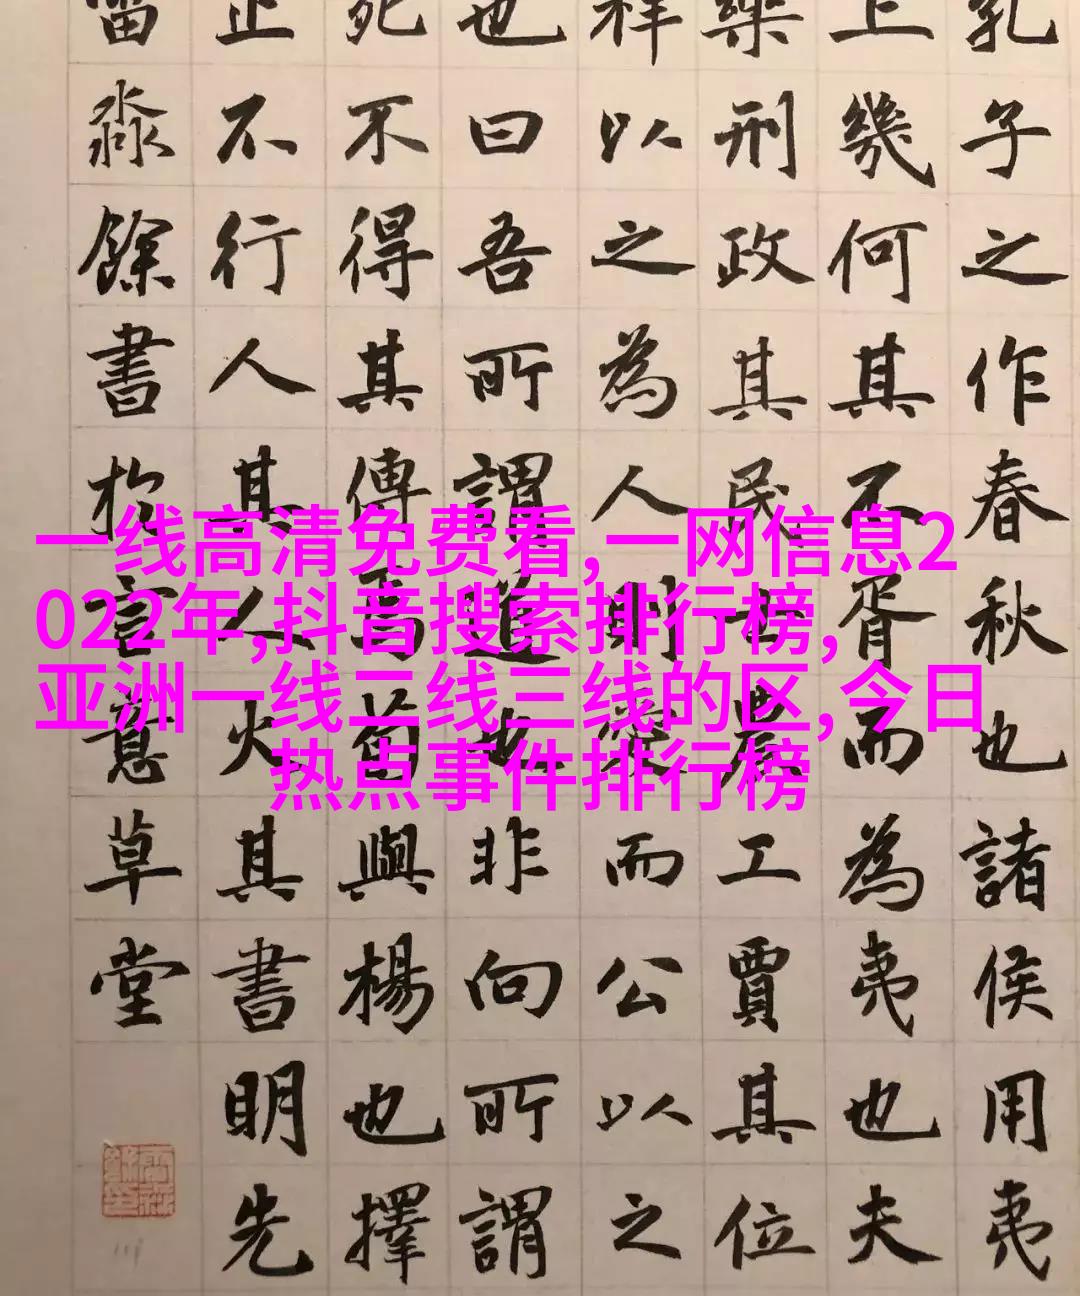 孔子之作春秋也諸侯用夷
上幾何其不胥而為夷也夫
樂刑政其民士農工賈其位
祥以之為人則愛而公以之
也曰吾所謂道也非向所謂
死不得其傳焉荀與楊也擇
止不行人其人火其書明先
淼餘書於言意草堂
一线高清免费看,一网信息2
022年,抖音搜索排行榜,
亚洲一线二线三线的区,今日
热点事件排行榜